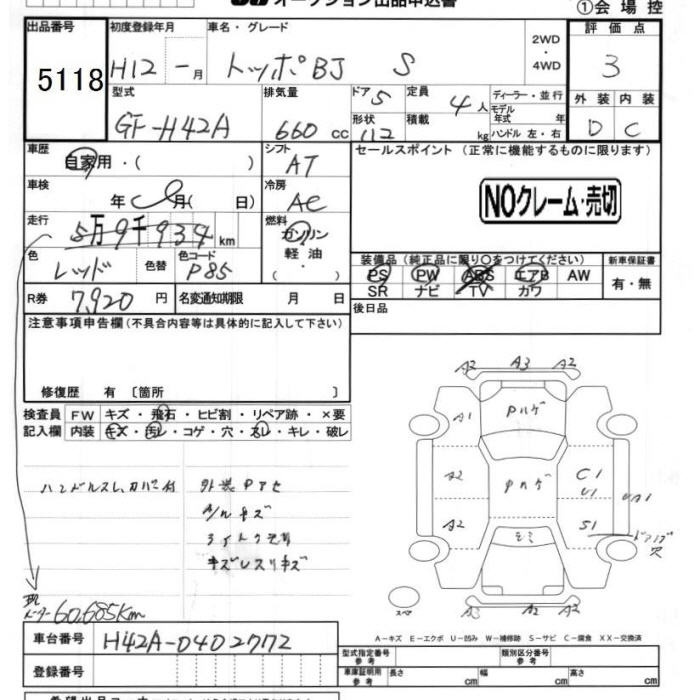 オークション出品申込書
①会場控
出品番号 初度登録年月 車名・グレード 評価点
5118 H12 - 月 トッポBJ S 2WD 4WD 3
型式 排気量 ドア 5 定員 4人 ディーラー・並行 外装 内装
GF-H42A 660 cc 形状 112 積載 kg モデル年式 年 ハンドル 左・右 D C
車歴 シフト セールスポイント (正常に機能するものに限ります)
自家用・( ) AT
車検 冷房
年 月( 日) AC NOクレーム・売切
走行 燃料
5万9千934 km ガソリン
軽油・( )
色 色替 色コード 装備品 (純正品に限り○をつけてください) 新車保証書
レッド P85 PS PW ABS エアB AW 有・無
SR ナビ TV カワ
R券 7,920 円 名変通知期限 月 日 後日品
注意事項申告欄 (不具合内容等は具体的に記入して下さい)
修復歴 有 〔箇所 〕
検査員 FW キズ・飛石・ヒビ割・リペア跡・×要
記入欄 内装 キズ・汚レ・コゲ・穴・スレ・キレ・破レ
ハンドルスレ カバー付 外装
A/Wキズ
キズレスリキズ
A2 A3 A2
A1 Pハゲ
A2 Pハゲ C1 U1
A2 S1 ドアノブ穴
スペア
現メーター 60,685km
A-キズ E-エクボ U-凹み W-補修跡 S-サビ C-腐食 XX-交換済
車台番号 H42A-0402772
型式指定番号 参考 類別区分番号 参考
登録番号 車庫証明用 参考 長さ cm 幅 cm 高さ cm
希望出品コーナー